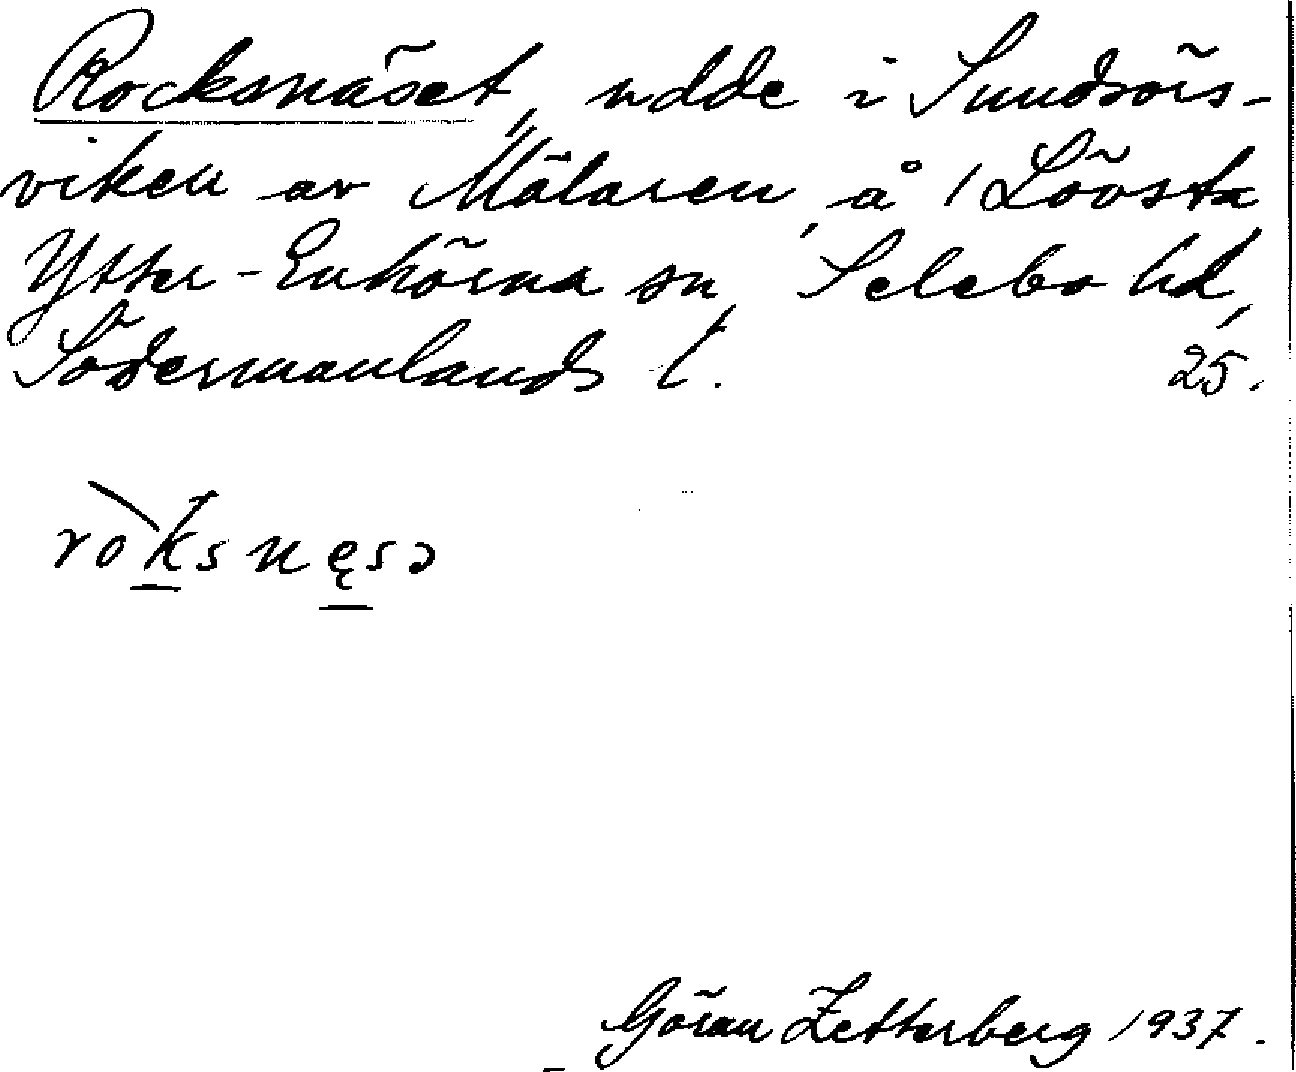 Rocksnäset, udde i Sundsörs-
viken av Mälaren, å 1 Lövsta
Ytter-Enhörna sn, Selebo hd,
Södermanlands l. 25.
ròksnęsə
Göran Zetterberg 1937.